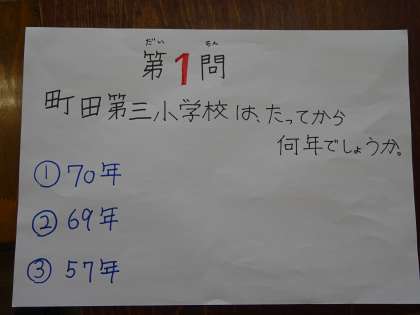 だい もん
第1問
町田第三小学校は、たってから
何年でしょうか。
① 70年
② 69年
③ 57年